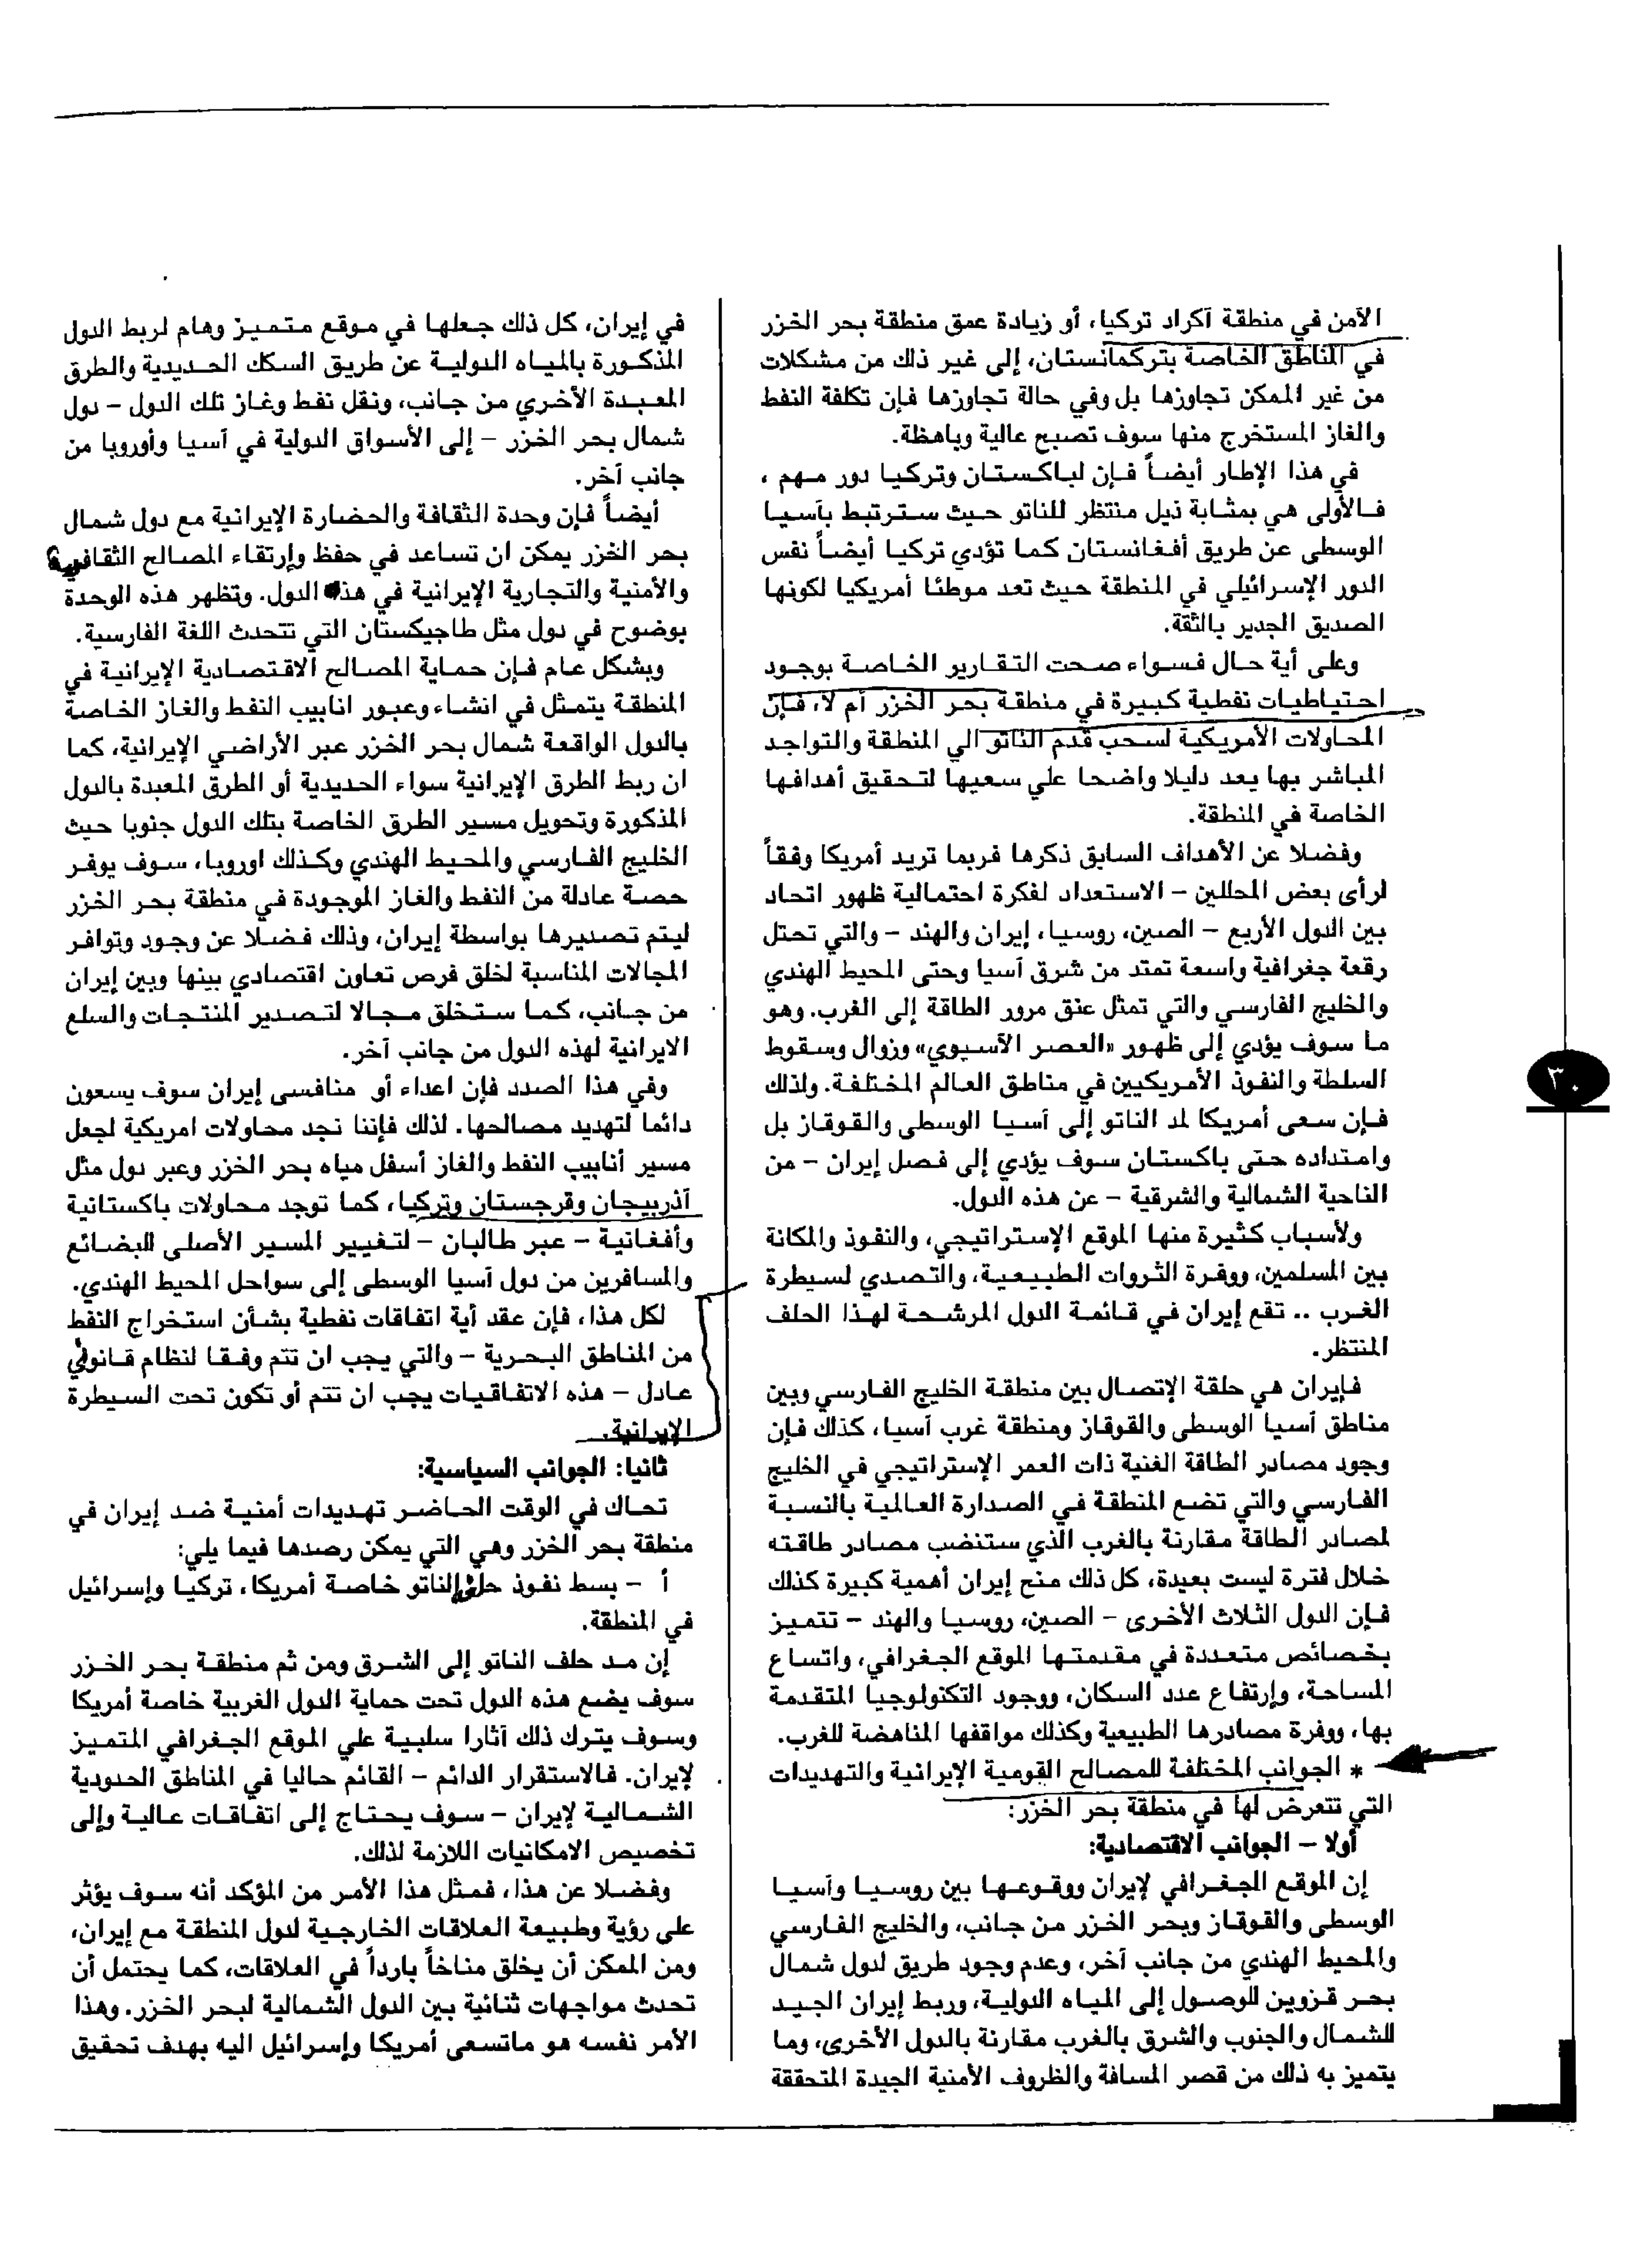 الآمن في منطقة آكراد تركيا، أو زيادة عمق منطقة بحر الخزر
في المناطق الخاصة بتركمانستان، إلى غير ذلك من مشكلات
من غير الممكن تجاوزها بل وفي حالة تجاوزها فإن تكلفة النفط
والغاز المستخرج منها سوف تصبح عالية وباهظة.
في هذا الإطار أيضاً فإن لباكستان وتركيا دور مهم ،
فالأولى هي بمثابة ذيل منتظر للناتو حيث سترتبط بآسيا
الوسطى عن طريق أفغانستان كما تؤدي تركيا أيضاً نفس
الدور الإسرائيلي في المنطقة حيث تعد موطئا أمريكيا لكونها
الصديق الجدير بالثقة.
وعلى أية حال فسواء صحت التقارير الخاصة بوجود
احتياطيات نفطية كبيرة في منطقة بحر الخزر أم لا، فإن
المحاولات الأمريكية لسحب قدم الناتو الي المنطقة والتواجد
المباشر بها يعد دليلا واضحا علي سعيها لتحقيق أهدافها
الخاصة في المنطقة.
وفضلا عن الأهداف السابق ذكرها فربما تريد أمريكا وفقاً
لرأى بعض المحللين – الاستعداد لفكرة احتمالية ظهور اتحاد
بين الدول الأربع – الصين، روسيا، إيران والهند – والتي تحتل
رقعة جغرافية واسعة تمتد من شرق آسيا وحتى المحيط الهندي
والخليج الفارسي والتي تمثل عنق مرور الطاقة إلى الغرب. وهو
ما سوف يؤدي إلى ظهور «العصر الآسيوي» وزوال وسقوط
السلطة والنفوذ الأمريكيين في مناطق العالم المختلفة. ولذلك
فإن سعى أمريكا لمد الناتو إلى آسيا الوسطى والقوقاز بل
وامتداده حتى باكستان سوف يؤدي إلى فصل إيران – من
الناحية الشمالية والشرقية – عن هذه الدول.
ولأسباب كثيرة منها الموقع الإستراتيجي، والنفوذ والمكانة
بين المسلمين، ووفرة الثروات الطبيعية، والتصدي لسيطرة
الغرب .. تقع إيران في قائمة الدول المرشحة لهذا الحلف
المنتظر.
فإيران هي حلقة الإتصال بين منطقة الخليج الفارسي وبين
مناطق آسيا الوسطى والقوقاز ومنطقة غرب آسيا، كذلك فإن
وجود مصادر الطاقة الغنية ذات العمر الإستراتيجي في الخليج
الفارسي والتي تضع المنطقة في الصدارة العالمية بالنسبة
لمصادر الطاقة مقارنة بالغرب الذي ستنضب مصادر طاقته
خلال فترة ليست بعيدة، كل ذلك منح إيران أهمية كبيرة كذلك
فإن الدول الثلاث الأخرى – الصين، روسيا والهند – تتميز
بخصائص متعددة في مقدمتها الموقع الجغرافي، واتساع
المساحة، وإرتفاع عدد السكان، ووجود التكنولوجيا المتقدمة
بها، ووفرة مصادرها الطبيعية وكذلك مواقفها المناهضة للغرب.
* الجوانب المختلفة للمصالح القومية الإيرانية والتهديدات
التي تتعرض لها في منطقة بحر الخزر:
أولا – الجوانب الاقتصادية:
إن الموقع الجغرافي لإيران ووقوعها بين روسيا وآسيا
الوسطى والقوقاز وبحر الخزر من جانب، والخليج الفارسي
والمحيط الهندي من جانب آخر، وعدم وجود طريق لدول شمال
بحر قزوين للوصول إلى المياه الدولية، وربط إيران الجيد
للشمال والجنوب والشرق بالغرب مقارنة بالدول الأخرى، وما
يتميز به ذلك من قصر المسافة والظروف الأمنية الجيدة المتحققة
في إيران، كل ذلك جعلها في موقع متميز وهام لربط الدول
المذكورة بالمياه الدولية عن طريق السكك الحديدية والطرق
المعبدة الأخري من جانب، ونقل نفط وغاز تلك الدول – دول
شمال بحر الخزر – إلى الأسواق الدولية في آسيا وأوروبا من
جانب آخر.
أيضاً فإن وحدة الثقافة والحضارة الإيرانية مع دول شمال
بحر الخزر يمكن ان تساعد في حفظ وإرتقاء المصالح الثقافية
والأمنية والتجارية الإيرانية في هذه الدول. وتظهر هذه الوحدة
بوضوح في دول مثل طاجيكستان التي تتحدث اللغة الفارسية.
وبشكل عام فإن حماية المصالح الاقتصادية الإيرانية في
المنطقة يتمثل في انشاء وعبور انابيب النفط والغاز الخاصة
بالدول الواقعة شمال بحر الخزر عبر الأراضي الإيرانية، كما
ان ربط الطرق الإيرانية سواء الحديدية أو الطرق المعبدة بالدول
المذكورة وتحويل مسير الطرق الخاصة بتلك الدول جنوبا حيث
الخليج الفارسي والمحيط الهندي وكذلك اوروبا، سوف يوفر
حصة عادلة من النفط والغاز الموجودة في منطقة بحر الخزر
ليتم تصديرها بواسطة إيران، وذلك فضلا عن وجود وتوافر
المجالات المناسبة لخلق فرص تعاون اقتصادي بينها وبين إيران
من جانب، كما ستخلق مجالا لتصدير المنتجات والسلع
الايرانية لهذه الدول من جانب آخر.
وفي هذا الصدد فإن اعداء أو منافسى إيران سوف يسعون
دائما لتهديد مصالحها. لذلك فإننا نجد محاولات امريكية لجعل
مسير أنابيب النفط والغاز أسفل مياه بحر الخزر وعبر دول مثل
آذربيجان وقرجستان وتركيا، كما توجد محاولات باكستانية
وأفغانية – عبر طالبان – لتغيير المسير الأصلى للبضائع
والمسافرين من دول آسيا الوسطى إلى سواحل المحيط الهندي.
لكل هذا، فإن عقد أية اتفاقات نفطية بشأن استخراج النفط
من المناطق البحرية – والتي يجب ان تتم وفقا لنظام قانوني
عادل – هذه الاتفاقيات يجب ان تتم أو تكون تحت السيطرة
الإيرانية.
ثانيا: الجوانب السياسية:
تحاك في الوقت الحاضر تهديدات أمنية ضد إيران في
منطقة بحر الخزر وهي التي يمكن رصدها فيما يلي:
أ – بسط نفوذ الناتو خاصة أمريكا، تركيا وإسرائيل
في المنطقة.
إن مد حلف الناتو إلى الشرق ومن ثم منطقة بحر الخزر
سوف يضع هذه الدول تحت حماية الدول الغربية خاصة أمريكا
وسوف يترك ذلك آثارا سلبية علي الموقع الجغرافي المتميز
لإيران. فالاستقرار الدائم – القائم حاليا في المناطق الحدودية
الشمالية لإيران – سوف يحتاج إلى اتفاقات عالية وإلى
تخصيص الامكانيات اللازمة لذلك.
وفضلا عن هذا، فمثل هذا الأمر من المؤكد أنه سوف يؤثر
على رؤية وطبيعة العلاقات الخارجية لدول المنطقة مع إيران،
ومن الممكن أن يخلق مناخاً بارداً في العلاقات، كما يحتمل أن
تحدث مواجهات ثنائية بين الدول الشمالية لبحر الخزر. وهذا
الأمر نفسه هو ماتسعى أمريكا وإسرائيل اليه بهدف تحقيق
٣٠